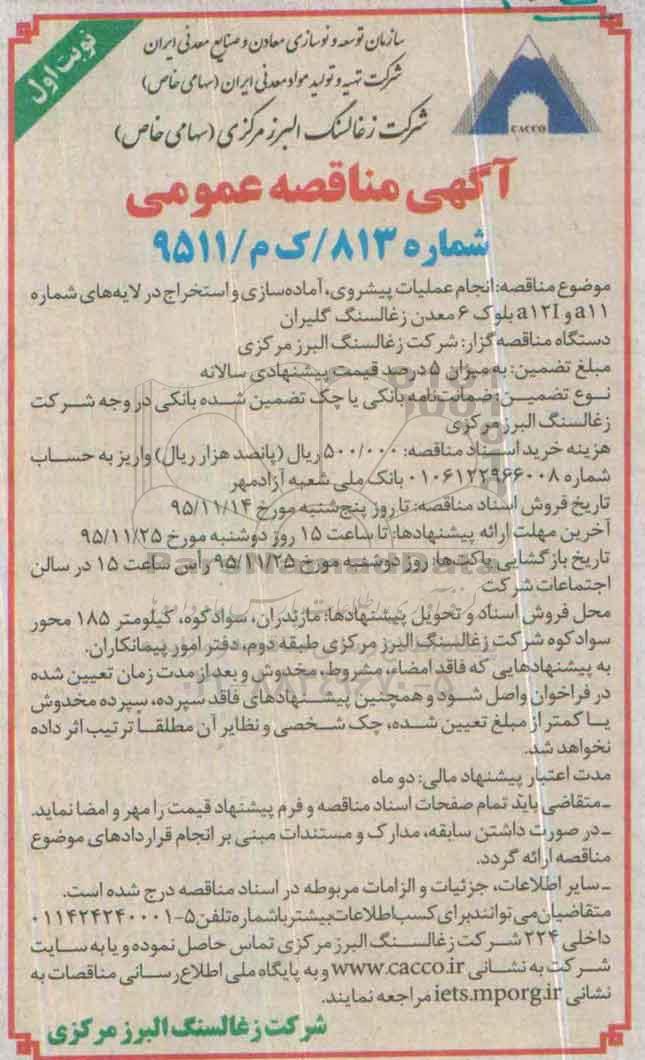 نوبت اول
سازمان توسعه و نوسازی معادن و صنایع معدنی ایران
شرکت تهیه و تولید مواد معدنی ایران (سهامی خاص)
شرکت زغالسنگ البرز مرکزی (سهامی خاص)
CACCO
آگهی مناقصه عمومی
شماره ۸۱۳/ک م/۹۵۱۱
موضوع مناقصه: انجام عملیات پیشروی، آماده‌سازی و استخراج در لایه‌های شماره
a۱۱ و a۱۲I بلوک ۶ معدن زغالسنگ گلیران
دستگاه مناقصه‌گزار: شرکت زغالسنگ البرز مرکزی
مبلغ تضمین: به میزان ۵ درصد قیمت پیشنهادی سالانه
نوع تضمین: ضمانت‌نامه بانکی یا چک تضمین شده بانکی در وجه شرکت
زغالسنگ البرز مرکزی
هزینه خرید اسناد مناقصه: ۵۰۰/۰۰۰ ریال (پانصد هزار ریال) واریز به حساب
شماره ۰۱۰۶۱۲۲۹۶۶۰۰۸ بانک ملی شعبه آزادمهر
تاریخ فروش اسناد مناقصه: تا روز پنج‌شنبه مورخ ۹۵/۱۱/۱۴
آخرین مهلت ارائه پیشنهادها: تا ساعت ۱۵ روز دوشنبه مورخ ۹۵/۱۱/۲۵
تاریخ بازگشایی پاکت‌ها: روز دوشنبه مورخ ۹۵/۱۱/۲۵ رأس ساعت ۱۵ در سالن
اجتماعات شرکت
محل فروش اسناد و تحویل پیشنهادها: مازندران، سوادکوه، کیلومتر ۱۸۵ محور
سوادکوه شرکت زغالسنگ البرز مرکزی طبقه دوم، دفتر امور پیمانکاران.
به پیشنهادهایی که فاقد امضاء، مشروط، مخدوش و بعد از مدت زمان تعیین شده
در فراخوان واصل شود و همچنین پیشنهادهای فاقد سپرده، سپرده مخدوش
یا کمتر از مبلغ تعیین شده، چک شخصی و نظایر آن مطلقا ترتیب اثر داده
نخواهد شد.
مدت اعتبار پیشنهاد مالی: دو ماه
ـ متقاضی باید تمام صفحات اسناد مناقصه و فرم پیشنهاد قیمت را مهر و امضا نماید.
ـ در صورت داشتن سابقه، مدارک و مستندات مبنی بر انجام قراردادهای موضوع
مناقصه ارائه گردد.
ـ سایر اطلاعات، جزئیات و الزامات مربوطه در اسناد مناقصه درج شده است.
متقاضیان می‌توانند برای کسب اطلاعات بیشتر با شماره تلفن ۵-۰۱۱۴۲۴۲۴۰۰۰۱
داخلی ۲۲۴ شرکت زغالسنگ البرز مرکزی تماس حاصل نموده و یا به سایت
شرکت به نشانی www.cacco.ir و به پایگاه ملی اطلاع‌رسانی مناقصات به
نشانی iets.mporg.ir مراجعه نمایند.
شرکت زغالسنگ البرز مرکزی